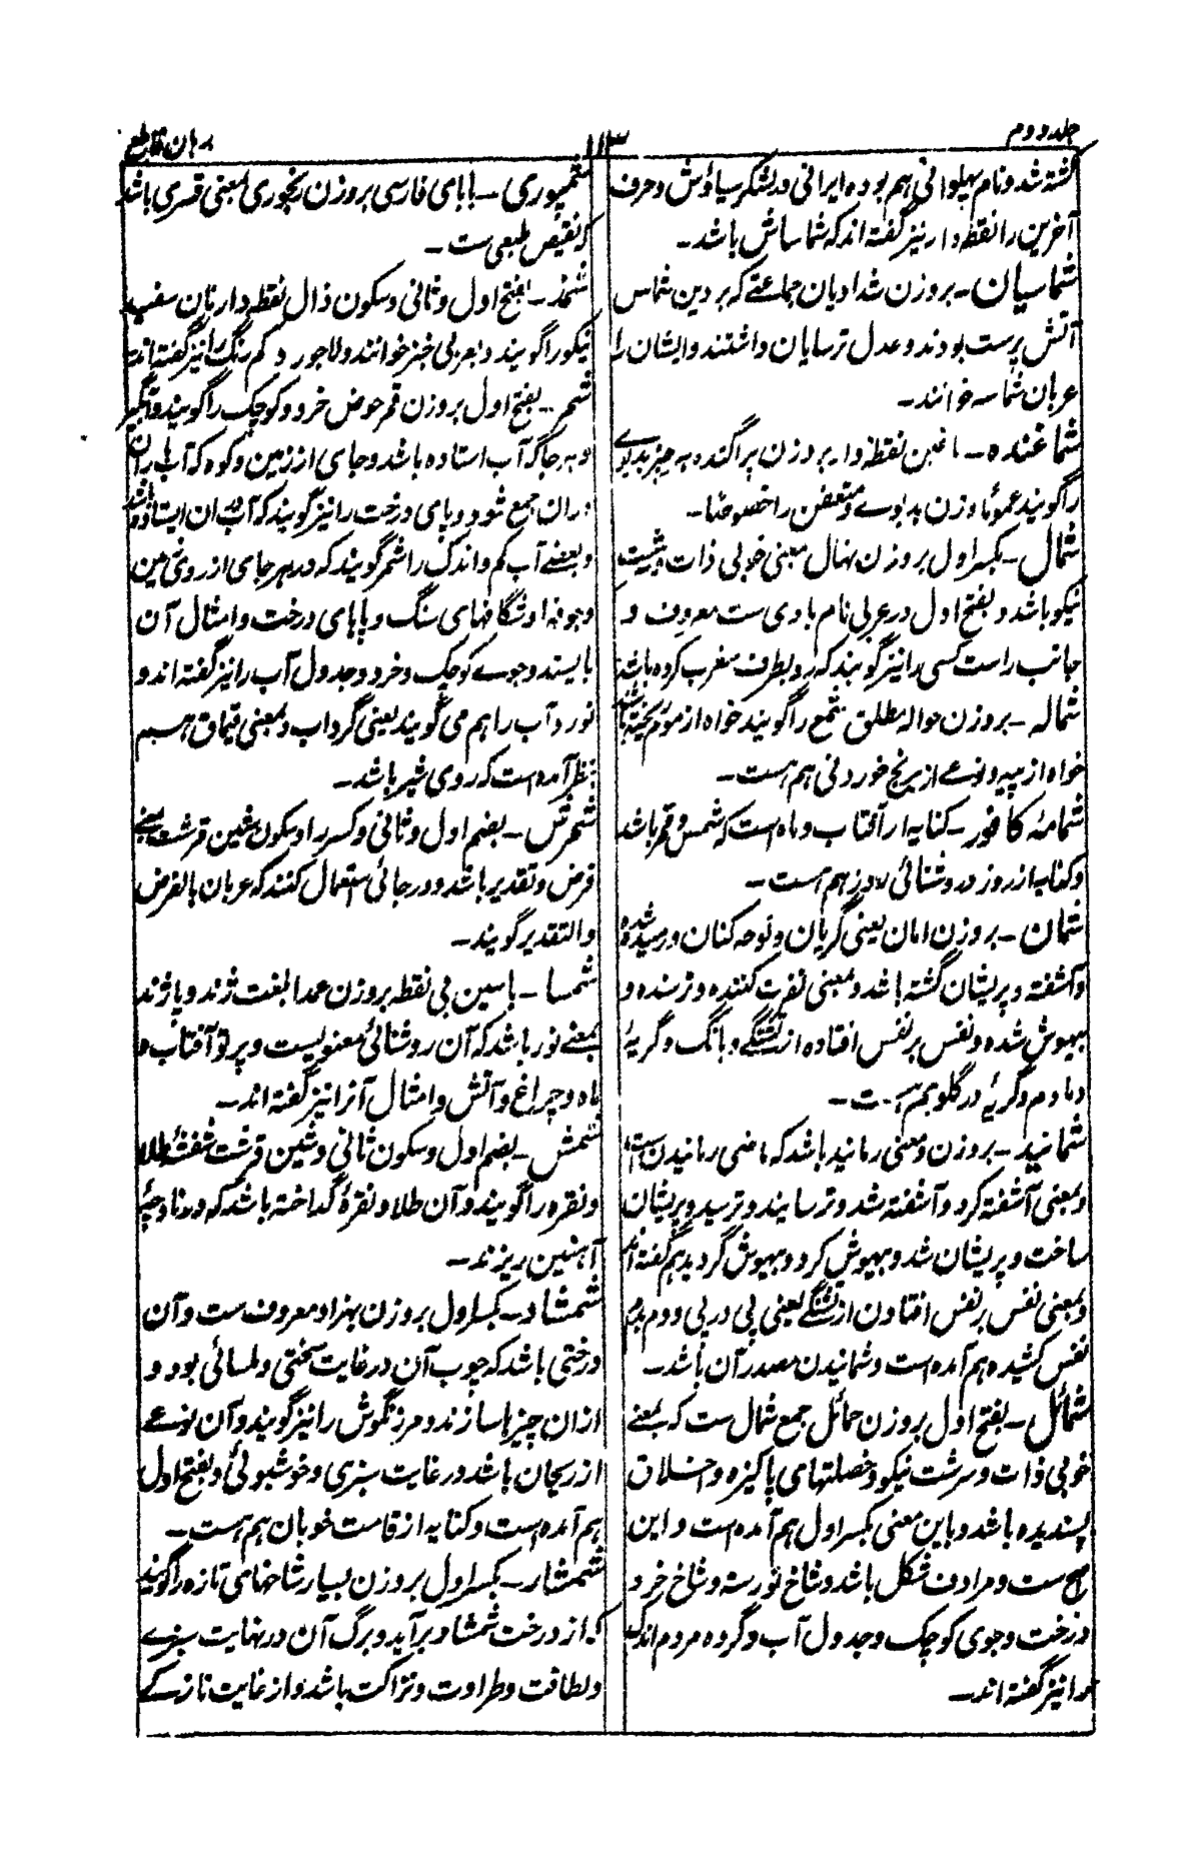 جلد دوم
۱۱۳
برهان قاطع
کشته شد و نام پهلوانی هم بوده ایرانی در لشکر سیاوش و حرف
آخرین را نقطه دار نیز گفته اند که شماساش باشد ـ
شماسیان ـ بر وزن شدادیان جماعتے که بر دین شماس
آتش پرست بودند و عدل ترسایان داشتند و ایشان را
عربان شماسه خوانند ـ
شماغنده ـ با غین نقطه دار بر وزن پراگنده هر چیز بدبوے
را گویند عموماً و زن بدبوے و متعفن را خصوصاً ـ
شمال ـ بکسر اول بر وزن نهال بمعنی خوبی ذات و
نیکو باشد و بفتح اول در عربی نام بادی ست معروف و
جانب راست کسی را نیز گویند که رو بطرف مغرب کرده باشد
شماله ـ بر وزن حواله مطلق شمع را گویند خواه از موم ریخته باشند
خواه از پیه و نوعے از برنج خوردنی هم هست ـ
شمامۀ کافور ـ کنایه از آفتاب و ماه است که شمس و قمر باشد
و کنایه از روز و روشنائی روز هم هست ـ
شمان ـ بر وزن امان یعنی گریان و نوحه کنان و رمیده شده
و آشفته و پریشان گشته باشد و بمعنی نفرت کننده و ترسنده و
بیهوش شده و نفس بر نفس افتاده از تشنگے و بانگ و گریۀ
دمادم و گریۀ در گلو هم هست ـ
شمانید ـ بر وزن و معنی رمانید باشد که ماضی رمانیدن است
و بمعنی آشفته کرد و آشفته شد و ترسانید و ترسید و پریشان
ساخت و پریشان شد و بیهوش کرد و بیهوش گردید هم گفته اند
و بمعنی نفس بر نفس افتادن از تشنگے یعنی پی در پی و دم بدم
نفس کشیده هم آمده است و شمانیدن مصدر آن باشد ـ
شمائل ـ بفتح اول بر وزن حمائل جمع شمال ست که بمعنے
خوبی ذات و سرشت نیکو و خصلتهای پاکیزه و اخلاق
پسندیده باشد و باین معنی بکسر اول هم آمده است و این
اصح ست و مرادف شکل باشد و شاخ نورسته و شاخ خرد
درخت و جوی کوچک و جدول آب و گروه مردم اندک
را نیز گفته اند ـ
شمپوری ـ با بای فارسی بر وزن رنجوری بمعنی قسری باشد
که نقیض طبعی ست ـ
شمذ ـ بفتح اول و ثانی و سکون ذال نقطه دار نان سفید
نیکو را گویند و بعربی خبز خوانند و لاجورد کم رنگ را نیز گفته اند
شمر ـ بفتح اول بر وزن قمر حوض خرد و کوچک را گویند و آبگیر
و هر جا که آب استاده باشد و جای از زمین و کوه که آب باران
دران جمع شود و پای درخت را نیز گویند که آب دران ایستاده باشد
و بعضے آب کم و اندک را شمر گویند که در هر جای از روی زمین
و جویها و شگافهای سنگ و پاپای درخت و امثال آن
بایستد و جوے کوچک و خرد و جدول آب را نیز گفته اند و
نورد آب را هم می گویند یعنی گرداب و بمعنی قیماق هم
بنظر آمده است که روی شیر باشد ـ
شمرش ـ بضم اول و ثانی و کسر را و سکون شین قرشت بمعنے
فرض و تقدیر باشد و در جائی استعمال کنند که عربان بالفرض
والتقدیر گویند ـ
شمسا ـ با سین بی نقطه بر وزن عمدا بلغت ژند و پاژند
بمعنے نور باشد که آن روشنائی معنویست و پرتو آفتاب و
ماه و چراغ و آتش و امثال آنرا نیز گفته اند ـ
شمش ـ بضم اول و سکون ثانی و شین قرشت شفشۀ طلا
و نقره را گویند و آن طلا و نقرۀ گداخته باشد که در ناوچۀ
آهنین ریزند ـ
شمشاد ـ بکسر اول بر وزن بهزاد معروف ست و آن
درختی باشد که چوب آن در غایت سختی و املسائی بود و
ازان چیزها سازند و مرزنگوش را نیز گویند و آن نوعے
از ریحان باشد در غایت سبزی و خوشبوئی و بفتح اول
هم آمده است و کنایه از قامت خوبان هم هست ـ
شمشار ـ بکسر اول بر وزن بسیار شاخهای تازه را گویند
که از درخت شمشاد برآید و برگ آن در نهایت سبزے
و لطافت و طراوت و نزاکت باشد و از غایت نازکے